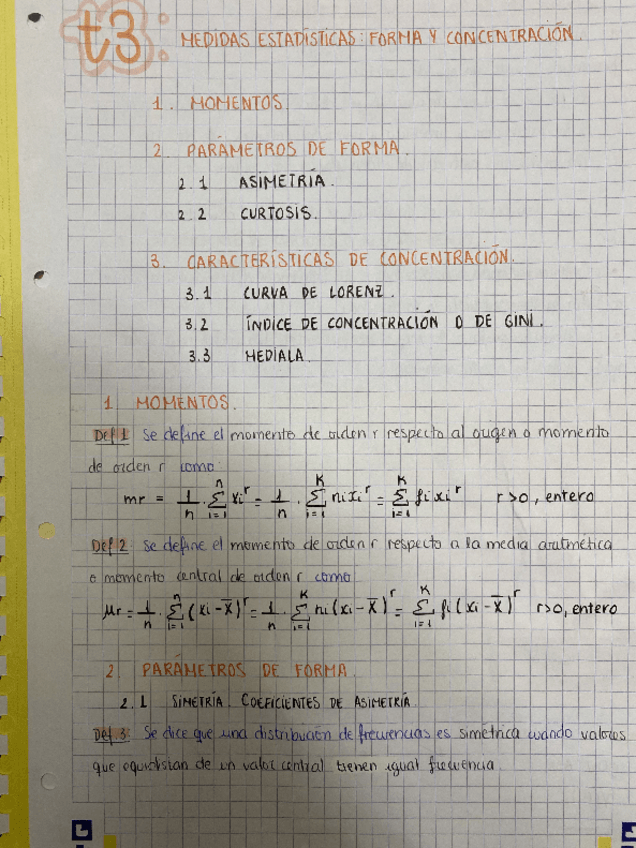 t3
MEDIDAS ESTADÍSTICAS: FORMA Y CONCENTRACIÓN.
1. MOMENTOS
2. PARÁMETROS DE FORMA.
2.1 ASIMETRÍA.
2.2 CURTOSIS.
3. CARACTERÍSTICAS DE CONCENTRACIÓN.
3.1 CURVA DE LORENZ.
3.2 ÍNDICE DE CONCENTRACIÓN O DE GINI.
3.3 MEDIALA.
1 MOMENTOS.
Def 1 Se define el momento de orden r respecto al origen o momento
de orden r como:
mr = 1/n · Σ_{i=1}^{n} xi^r = 1/n · Σ_{i=1}^{K} ni xi^r = Σ_{i=1}^{K} fi xi^r r>0, entero
Def 2: Se define el momento de orden r respecto a la media aritmética
o momento central de orden r como
μr = 1/n · Σ_{i=1}^{n} (xi - x̄)^r = 1/n · Σ_{i=1}^{K} ni (xi - x̄)^r = Σ_{i=1}^{K} fi (xi - x̄)^r r>0, entero
2. PARÁMETROS DE FORMA.
2.1 SIMETRÍA. COEFICIENTES DE ASIMETRÍA.
Def. 3: Se dice que una distribución de frecuencias es simétrica cuando valores
que equidistan de un valor central tienen igual frecuencia.